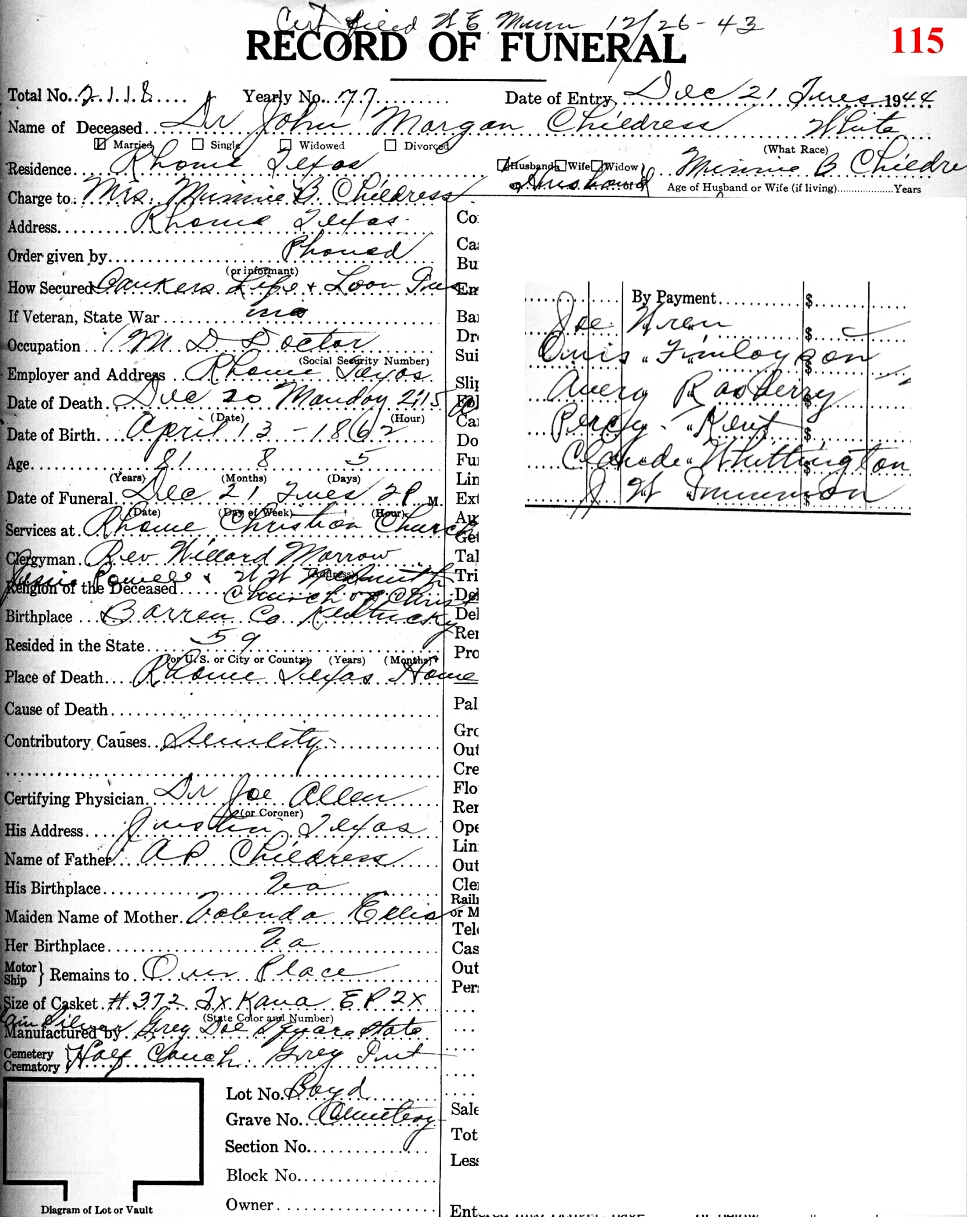 Cert filed W E Munn 12/26-43
RECORD OF FUNERAL
115
Total No. 2118 Yearly No. 77 Date of Entry Dec 21 Tues 1944
Name of Deceased Dr John Morgan Childress White
Married Single Widowed Divorced (What Race)
Residence Rhome Texas Husband Wife Widow of Husband Minnie B Childre
Age of Husband or Wife (if living) Years
Charge to Mrs. Minnie B. Childress
Address Rhome Texas
Order given by Phoned
(or informant)
How Secured Bankers Life & Loan Ins
If Veteran, State War no
Occupation M D Doctor
(Social Security Number)
Employer and Address Rhome Texas
Date of Death Dec 20 Monday 215
(Date) (Hour)
Date of Birth April 13 - 1862
Age 81 8 5
(Years) (Months) (Days)
Date of Funeral Dec 21 Tues 2 P M.
(Date) (Day of Week) (Hour)
Services at Rhome Christian Church
Clergyman Rev Willard Morrow
(Address)
Powell & W W Smith
Religion of the Deceased Church of Christ
Birthplace Barren Co Kentucky
Resided in the State 59
(or U. S. or City or County) (Years) (Months)
Place of Death Rhome Texas Home
Cause of Death
Contributory Causes Senility
Certifying Physician Dr Joe Allen
(or Coroner)
His Address Justin, Texas
Name of Father A P Childress
His Birthplace Va
Maiden Name of Mother Ellis
Her Birthplace Va
Motor Ship } Remains to Our Place
Size of Casket #372 Tx Kana EP 2X
(State Color and Number)
Silver Grey Doe Square State
Manufactured by
Cemetery Crematory } Half Couch Grey Int
Lot No. Boyd
Grave No. Cemetery
Section No.
Block No.
Owner
Diagram of Lot or Vault
Co
Ca
Bu
En
Ba
Dr
Sui
Slip
Ca
Do
Fu
Lin
Ext
Au
Get
Tal
Tri
Del
Del
Ren
Pro
Pal
Gro
Out
Cre
Flo
Ren
Ope
Lin
Out
Cle
Rail
or M
Tele
Cas
Out
Per
Sale
Tot
Less
By Payment $
Joe Wren $
Finlayson $
Avery Rasberry $
Percy " Kent $
Claude " Whittington $
J W $